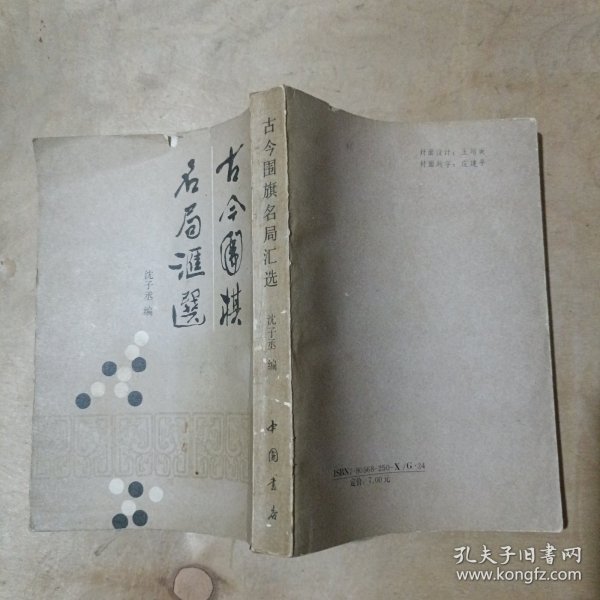 古今圍棋
名局滙選
沈子丞 编
古今围旗名局汇选
沈子丞 编
中国书店
封面设计：王珣
封面题字：庞建平
ISBN7-80568-250-X/G·24
定价：7.00元
孔夫子旧书网
www.kongfz.com